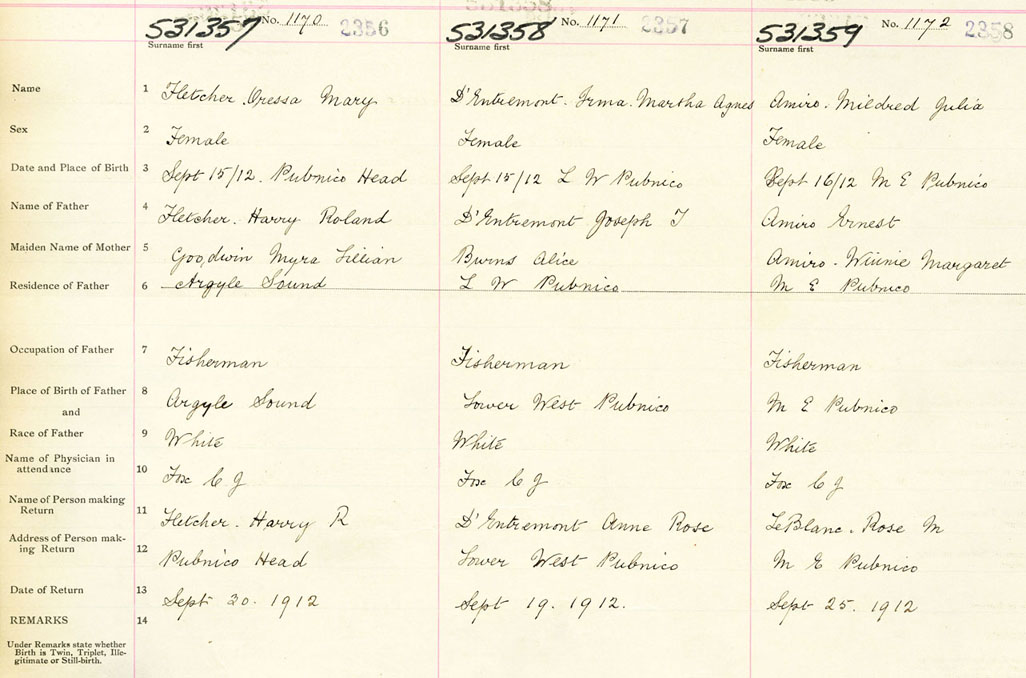 531357 No. 1170 2356
531358 No. 1171 2357
531359 No. 1172 2358
Surname first Surname first Surname first
Name 1 Fletcher. Oressa Mary D'Entremont. Irma. Martha Agnes Amiro. Mildred Julia
Sex 2 Female Female Female
Date and Place of Birth 3 Sept 15/12. Pubnico Head Sept 15/12 L W Pubnico Sept 16/12 M E Pubnico
Name of Father 4 Fletcher. Harry Roland D'Entremont Joseph T Amiro Ernest
Maiden Name of Mother 5 Goodwin Myra Lillian Burns Alice Amiro. Winnie Margaret
Residence of Father 6 Argyle Sound L W Pubnico M E Pubnico
Occupation of Father 7 Fisherman Fisherman Fisherman
Place of Birth of Father 8 Argyle Sound Lower West Pubnico M E Pubnico
and
Race of Father 9 White White White
Name of Physician in
attendance 10 Fox C J Fox C J Fox C J
Name of Person making
Return 11 Fletcher. Harry R D'Entremont Anne Rose LeBlanc. Rose M
Address of Person mak-
ing Return 12 Pubnico Head Lower West Pubnico M E Pubnico
Date of Return 13 Sept 30. 1912 Sept 19. 1912. Sept 25. 1912
REMARKS 14
Under Remarks state whether
Birth is Twin, Triplet, Ille-
gitimate or Still-birth.